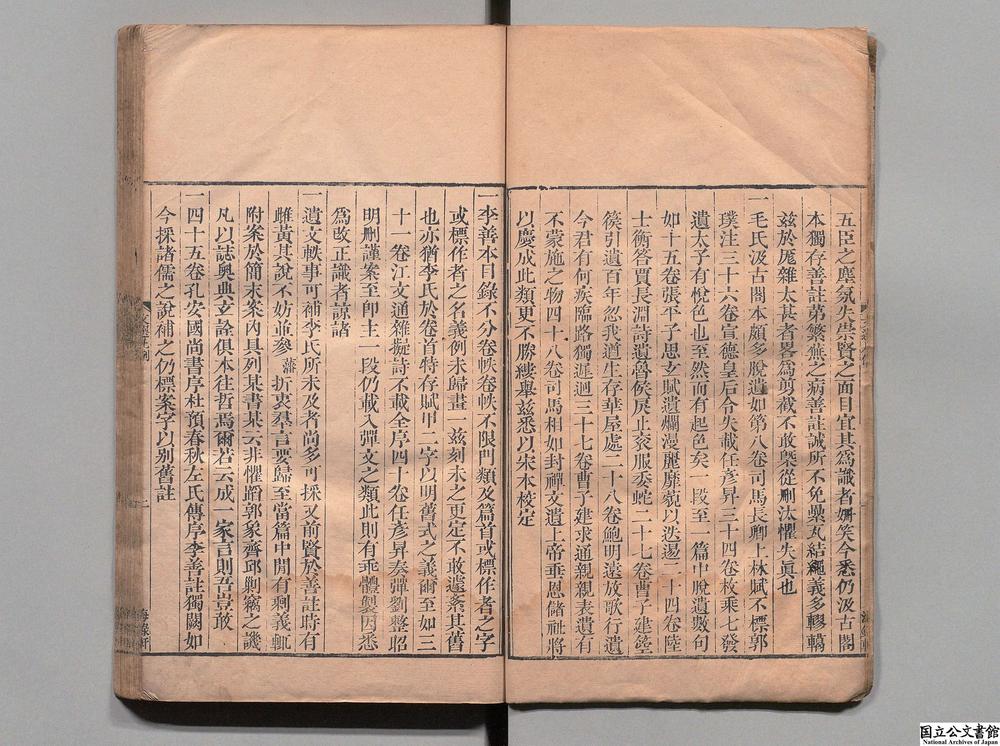 五臣之塵氛失崇賢之面目宜其為識者姍笑今悉仍汲古閣
本獨存善註第繁蕪之病善註誠所不免纍丸結繩義多轇轕
茲於厖雜太甚者畧為剪截不敢槩從刪汰懼失眞也
一毛氏汲古閣本頗多脫遺如第八卷司馬長卿上林賦不標郭
璞注三十六卷宣德皇后令失載任彥昇三十四卷枚乘七發
遺太子有悅色也至然而有起色矣一段至一篇中脫遺數句
如十五卷張平子思玄賦遺爛漫麗靡藐以迭逷二十四卷陸
士衡答賈長淵詩遺魯侯戾止衮服委蛇二十七卷曹子建箜
篌引遺百年忽我遒生存華屋處二十八卷鮑明遠放歌行遺
今君有何疾臨路獨遲迴三十七卷曹子建求通親親表遺有
不蒙施之物四十八卷司馬相如封禪文遺上帝垂恩儲祉將
以慶成此類更不勝縷舉茲悉以宋本校定
一李善本目錄不分卷帙卷帙不限門類及篇首或標作者之字
或標作者之名義例未歸畫一茲刻未之更定不敢遽紊其舊
也亦猶李氏於卷首特存賦甲二字以明舊式之義爾至如三
十一卷江文通雜擬詩不載全序四十卷任彥昇奏彈劉整昭
明刪謹案至即主一段仍載入彈文之類此則有乖體製因悉
為改正識者諒諸
一遺文軼事可補李氏所未及者尚多可採又前賢於善註時有
雌黃其說不妨並參藩折衷羣言要歸至當篇中閒有剩義輒
附案於簡末案內具列某書某云非懼蹈郭象齊邱剿竊之譏
凡以誌奧典立詮俱本往哲焉爾若云成一家言則吾豈敢
一四十五卷孔安國尚書序杜預春秋左氏傳序李善註獨闕如
今採諸儒之說補之仍標案字以別舊註
海錄軒
国立公文書館
National Archives of Japan